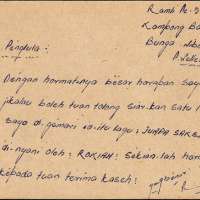 Ramb
Kampong Ba
Bunga
Pengtula:
Dengan hormatnya besar harapan say
jikalau boleh tuan tolong siarkan satu l
saya di gemari ia-itu lagu; JUMPA
di-nyani oleh; ROKIAH: sekian-lah har
kepada tuan terima kaseh: